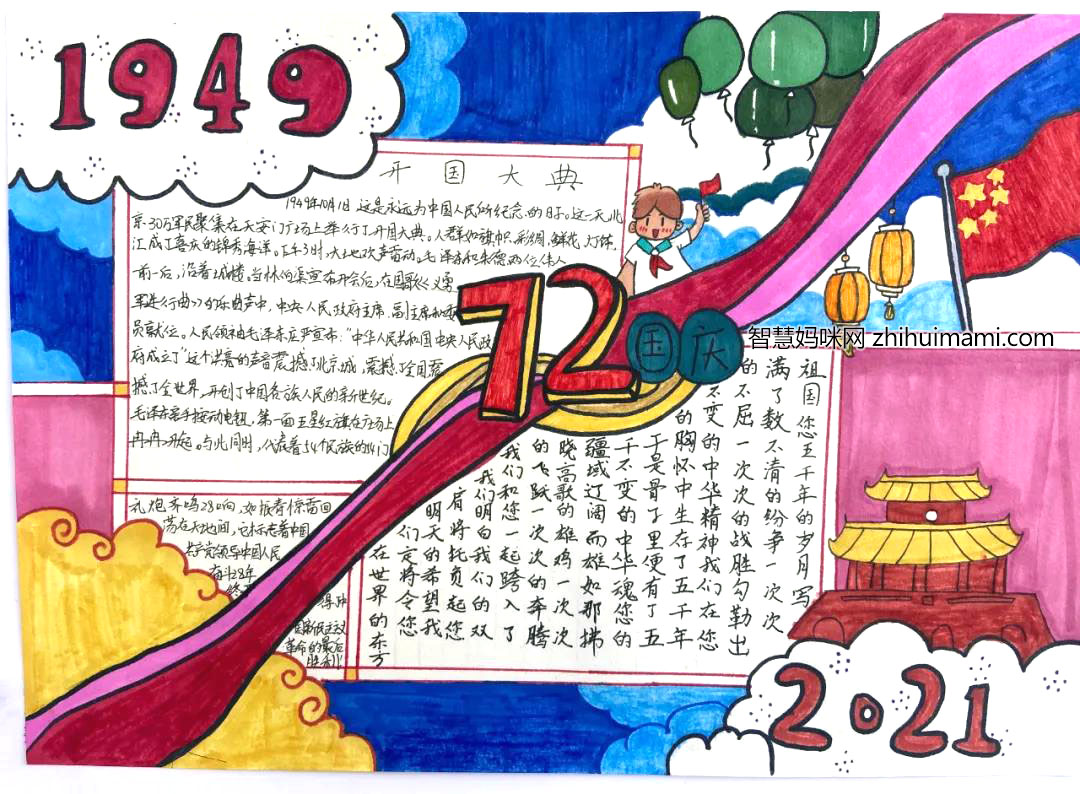 1949
开国大典
1949年10月1日 这是永远为中国人民所纪念的日子。这一天,北
京30万军民聚集在天安门广场上举行了开国大典。人群如旗帜、彩绸、鲜花、灯饰、
汇成了喜庆的锦秀海洋。下午3时,大地欢声雷动。毛泽东和朱德两位伟人
前一后,沿着城楼。当林伯渠宣布开会后,在国歌《义勇
军进行曲》的乐曲声中,中央人民政府主席、副主席和委
员就位。人民领袖毛泽东庄严宣布:“中华人民共和国中央人民政
府成立了”这个洪亮的声音震撼了北京城,震撼了全国震
撼了全世界,开创了中国各族人民的新世纪。
毛泽东亲手按动电钮,第一面五星红旗在广场上
冉冉升起。与此同时,代表着54个民族的54门
礼炮齐鸣28响,如报春惊雷回
荡在天地间,它标志着中国
共产党领导中国人民
奋斗28年
国新民主主义
革命的最后
胜利!
72
国庆
智慧妈咪网 zhihuimami.com
祖国您五千年的岁月写
满了数不清的纷争一次次
的不屈一次次的战胜勾勒出
不变的中华精神我们在您
的胸怀中生存了五千年
于是骨子里便有了五
千不变的中华魂您的
疆域辽阔而雄如那拂
晓高歌的雄鸡一次次
的飞跃一次次的奔腾
我们和您一起跨入了
我们明白我们的双
肩将托负起您
明天的希望我
们京将令您
在世界的东方
2021